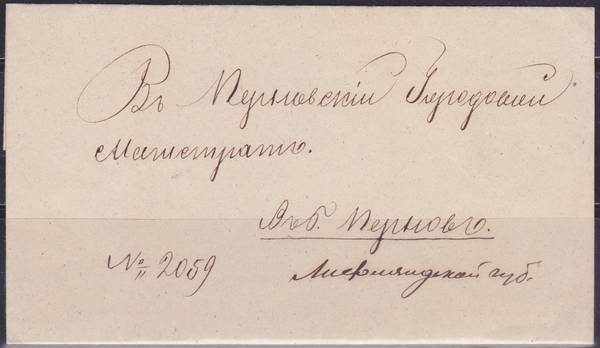 Въ Перновскій Городовой
Магистратъ.
Въ г. Перновъ.
№ 2059 Лифляндской губ.